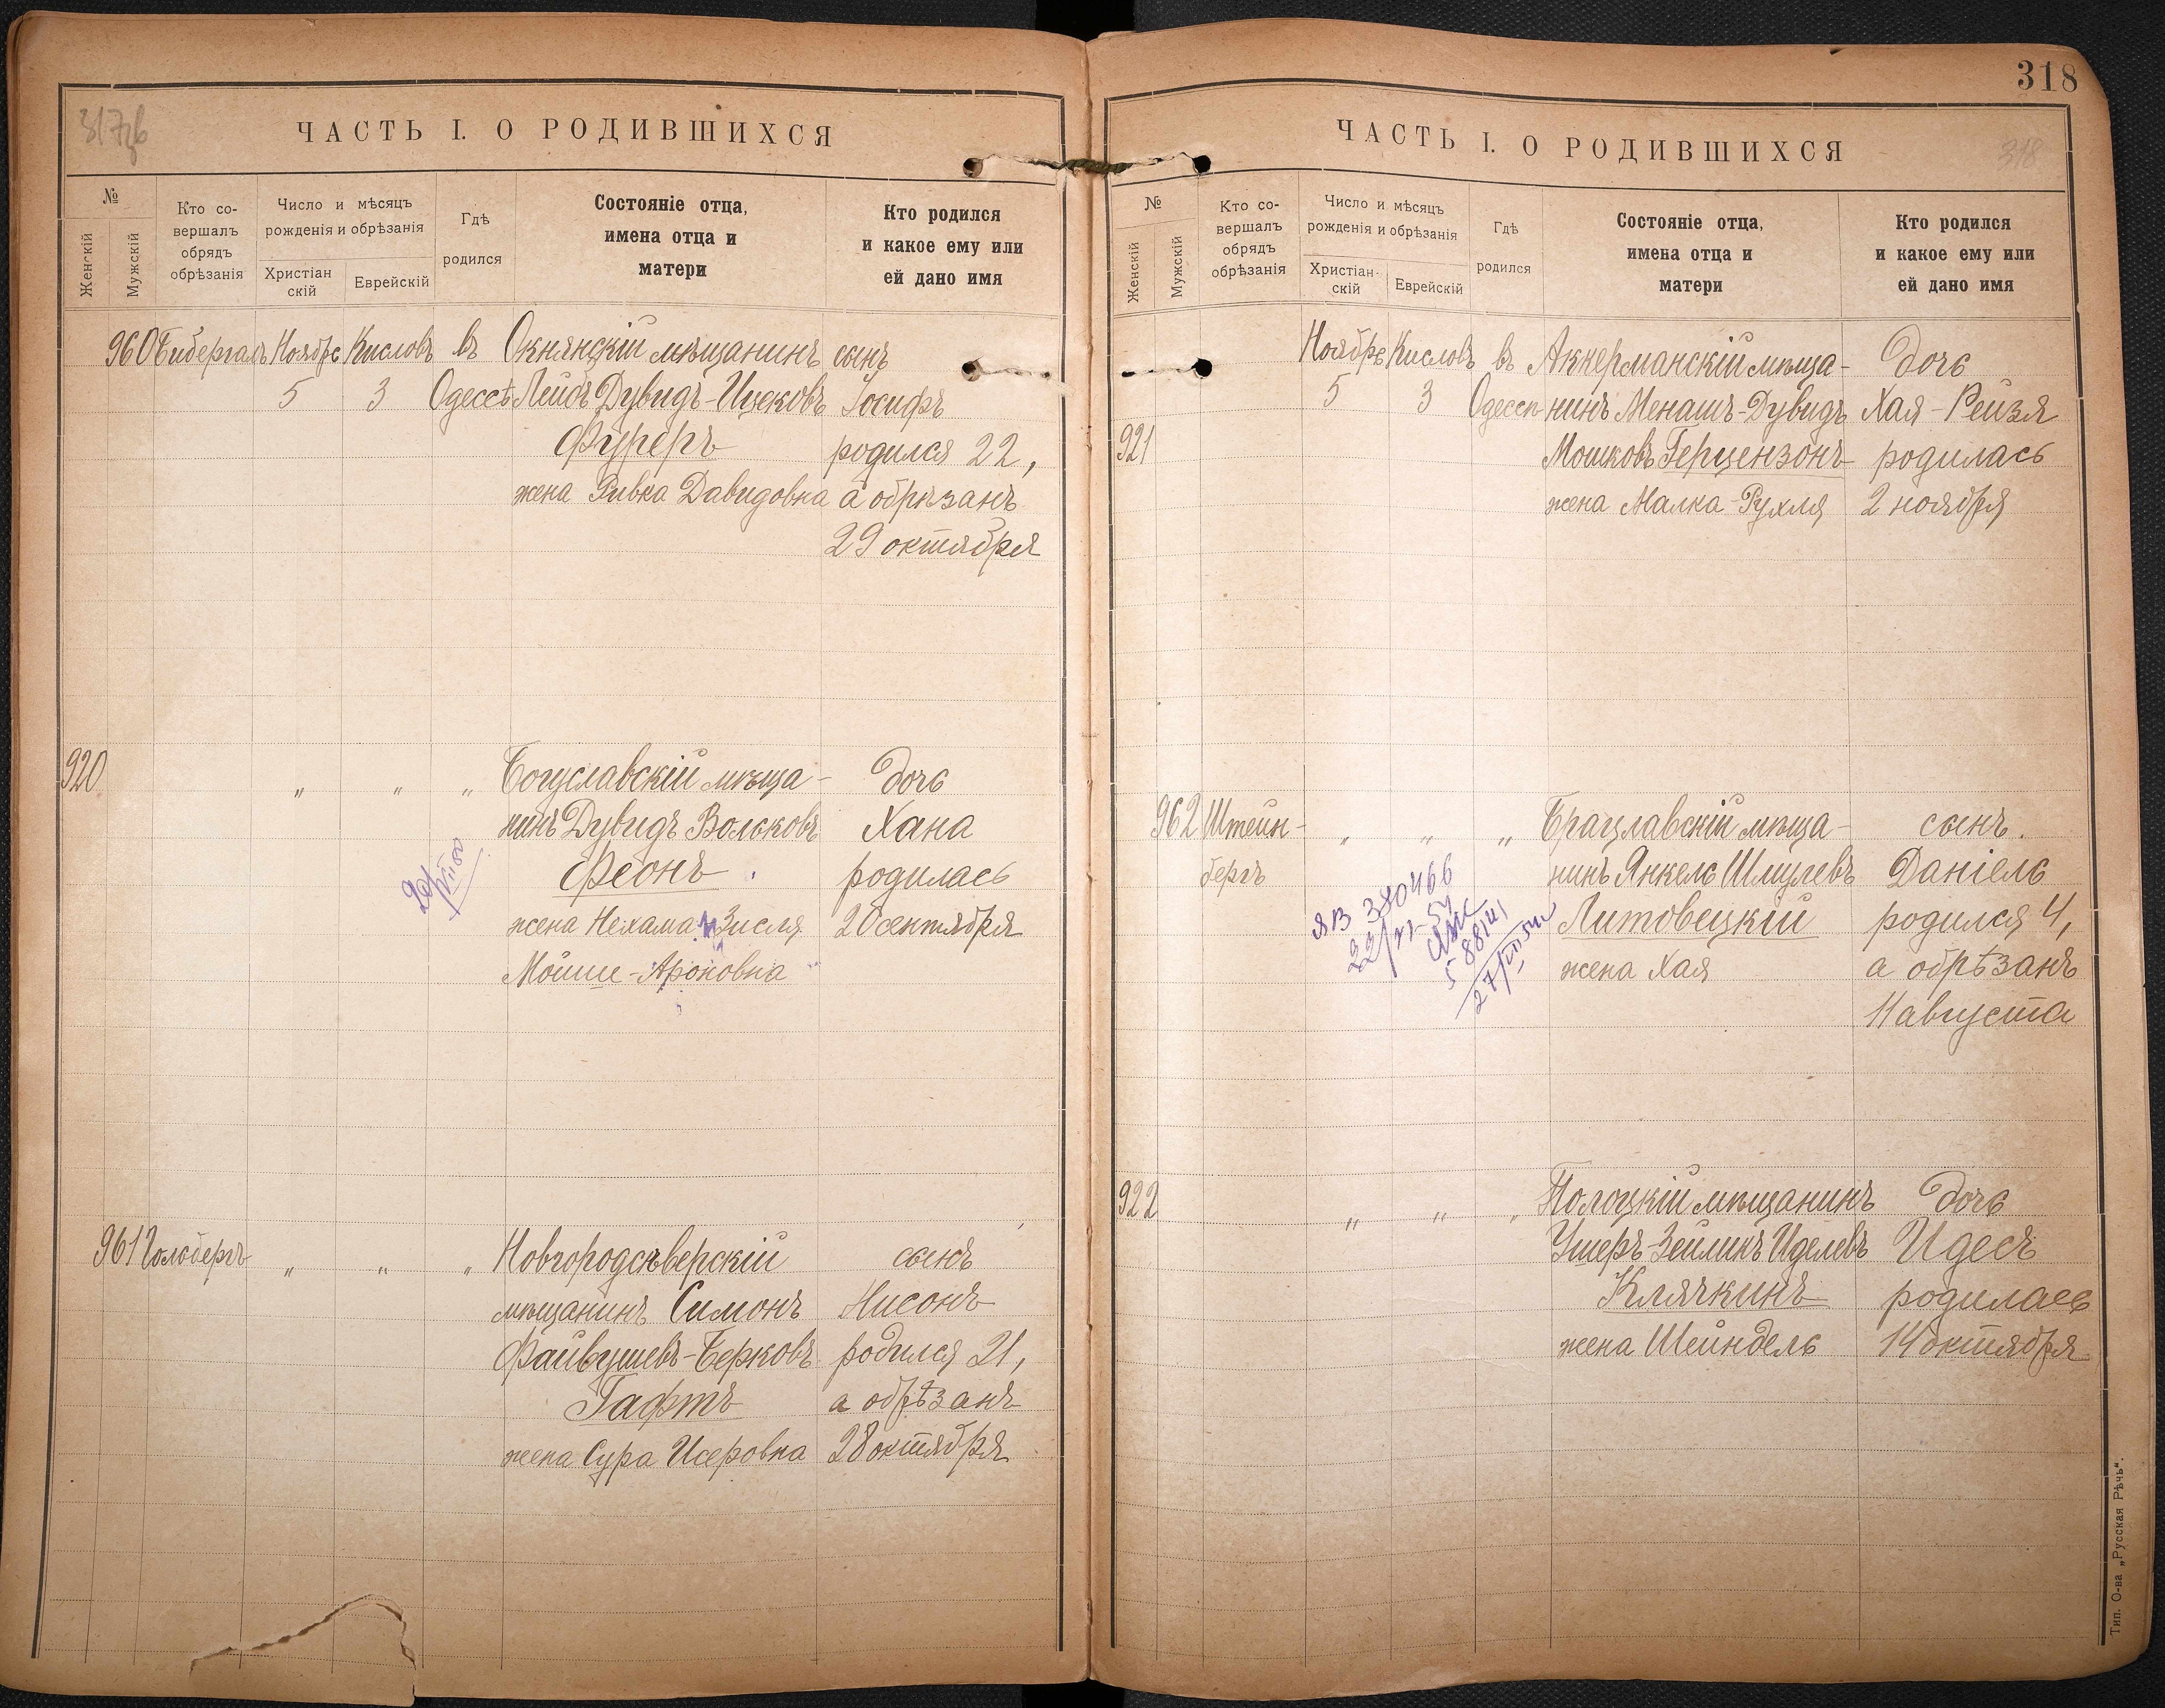 317об
ЧАСТЬ I. О РОДИВШИХСЯ
№
Женскій
Мужскій
Кто со-
вершалъ
обрядъ
обрѣзанія
Число и мѣсяцъ
рожденія и обрѣзанія
Христіан
скій
Еврейскій
Гдѣ
родился
Состояніе отца,
имена отца и
матери
Кто родился
и какое ему или
ей дано имя
960 Бибергалъ Ноябрь Кисловъ въ Окнянскій мѣщанинъ сынъ
5 3 Одессѣ Лейбъ Дувидъ-Ицковъ Іосифъ
Фуреръ родился 22,
жена Ривка Давидовна а обрѣзанъ
29 октября
920 " " " Богуславскій мѣща- дочь
нинъ Дувидъ Вольковъ Хана
Феонъ родилась
жена Нехама Зисля 20 сентября
Мойше-Ароновна
961 Гольдбергъ " " " Новгородсѣверскій сынъ
мѣщанинъ Симонъ Нисонъ
Файвушевъ-Берковъ родился 21,
Гафтъ а обрѣзанъ
жена Сура Исеровна 28 октября
318
ЧАСТЬ I. О РОДИВШИХСЯ
318
№
Женскій
Мужскій
Кто со-
вершалъ
обрядъ
обрѣзанія
Число и мѣсяцъ
рожденія и обрѣзанія
Христіан-
скій
Еврейскій
Гдѣ
родился
Состояніе отца,
имена отца и
матери
Кто родился
и какое ему или
ей дано имя
Ноябрь Кисловъ въ Аккерманскій мѣща- дочь
5 3 Одессѣ нинъ Менашъ-Дувидъ Хая-Рейзя
921 Мошковъ Герцензонъ родилась
жена Малка-Рухля 2 ноября
962 Штейн- " " " Брацлавскій мѣща- сынъ.
бергъ нинъ Янкель Шмулевъ Даніель
Литовецкій родился 4,
жена Хая а обрѣзанъ
11 августа
922 " " " Полоцкій мѣщанинъ дочь
Ушеръ-Зейликъ Иделевъ Идесъ
Клячкинъ родилась
жена Шейндель 14 октября
Тип. О-ва „Русская Рѣчь“.